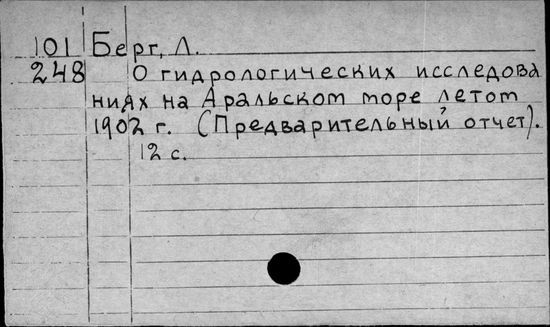 101 Берг, Л.
248 О гидрологических исследова
ниях на Аральском море летом
1902 г. (Предварительный отчет).
12 с.